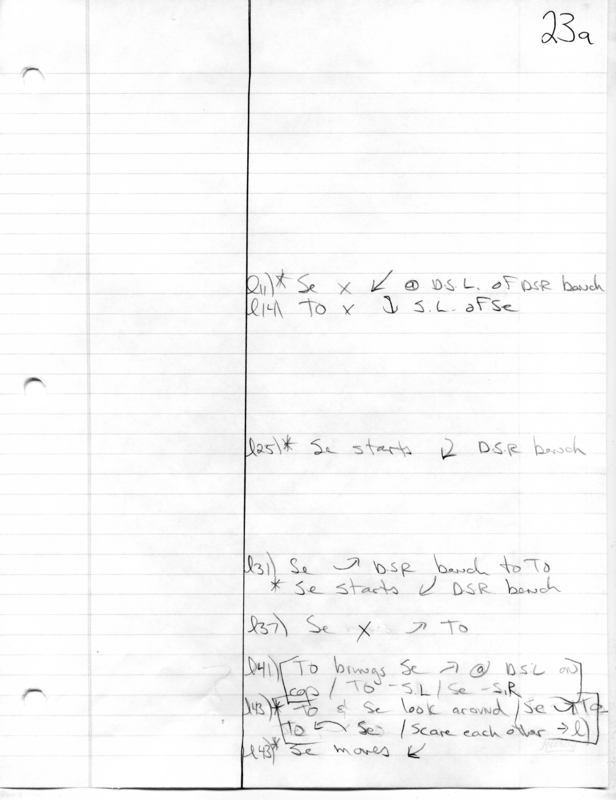 23a
l11)* Se x ↙ @ D.S.L. of DSR bench
l14) To x ↓ S.L. of Se
l25)* Se starts ↙ D.S.R bench
l31) Se ↗ DSR bench to To
* Se starts ↙ DSR bench
l37) Se x ↗ To
l41) To brings Se ↗ @ DSL on
cap / To - S.L / Se - S.R
l43)* To & Se look around / Se → To
To ← Se / Scare each other → l)
l43)* Se moves ↙